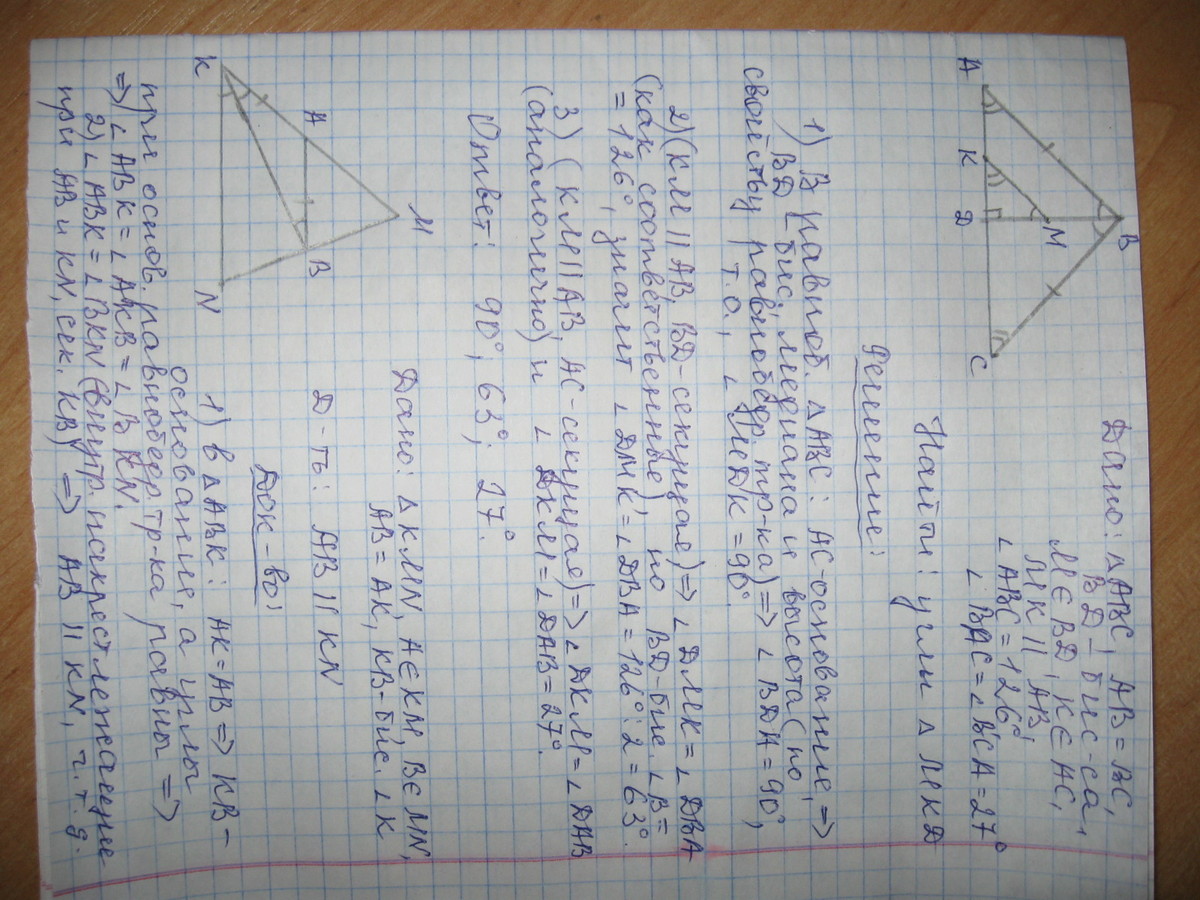 B
A
K
D
M
C
Дано: △ABC, AB=BC,
BD-бис-са,
M∈BD, K∈AC,
MK || AB,
∠ABC=126°,
∠BAC=∠BCA=27°
Найти: углы △MKD
Решение:
1) В равноб. △ABC: AC-основание, =>
BD-бис., медиана и высота (по
свойству равнобедр. тр-ка) => ∠BDA=90°,
т.о., ∠MDK=90°.
2) (KM || AB, BD-секущая) => ∠DMK=∠DBA
(как соответственные), но BD-бис. ∠B=
=126°, значит ∠DMK=∠DBA=126°:2=63°.
3) (KM || AB, AC-секущая) => ∠DKM=∠DAB
(аналогично) и ∠DKM=∠DAB=27°.
Ответ: 90°; 63°; 27°.
M
A
B
K
N
Дано: △KMN, A∈KM, B∈MN,
AB=AK, KB-бис. ∠K
Д-ть: AB || KN
Док-во:
1) в △ABK: AK=AB => KB-
основание, а углы
при основ. равнобедр. тр-ка равны =>
=> ∠ABK=∠AKB=∠BKN.
2) ∠ABK=∠BKN (внутр. накрест лежащие
при AB и KN, сек. KB) => AB || KN, ч.т.д.